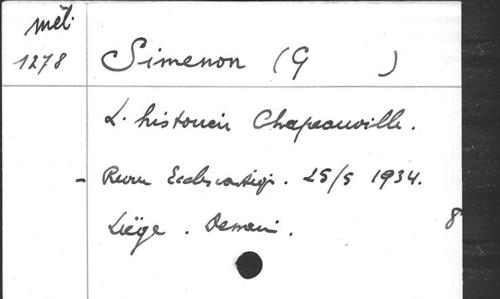 mél.
1278 Simenon (G )
L. historien Chapeauville.
- Revue Ecclesiastiq. 25/5 1934.
Liège. Dessain. 8